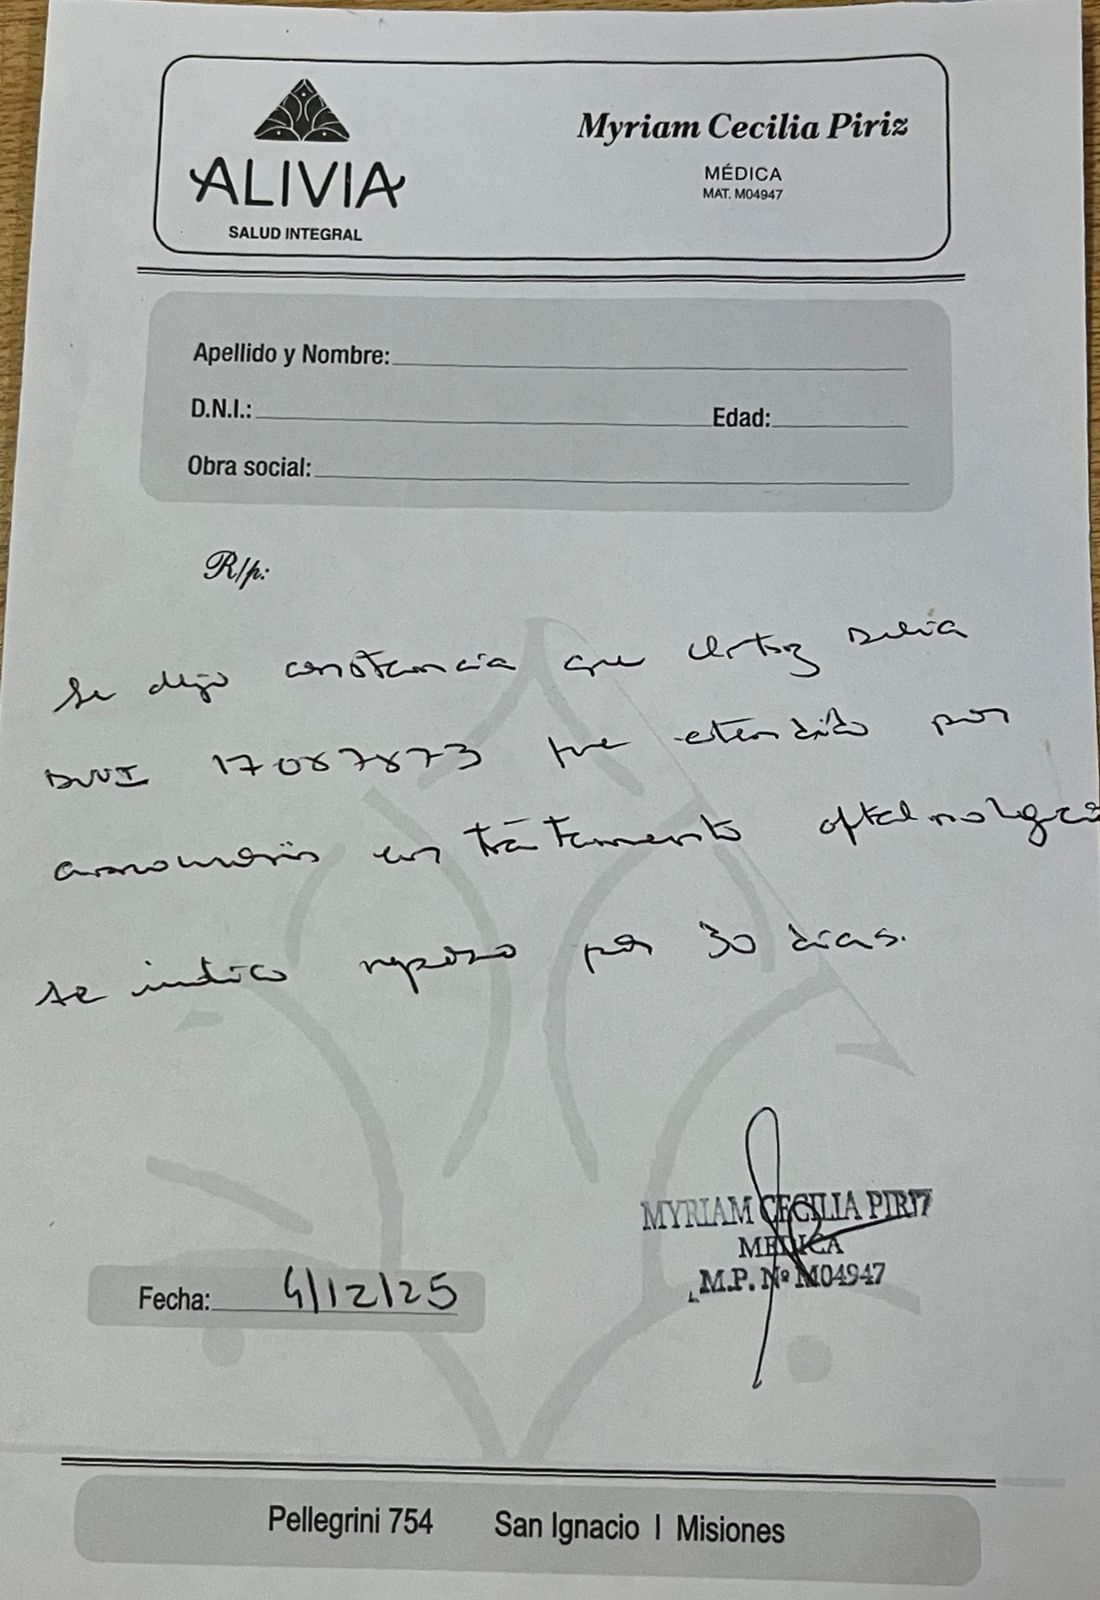 ALIVIA
SALUD INTEGRAL
Myriam Cecilia Piriz
MÉDICA
MAT. M04947
Apellido y Nombre:
D.N.I.: Edad:
Obra social:
R/p:
Se dejo constancia que Ortiz Delia
DNI 17087873 fue atendido por
en tratamiento oftalmologico
se indico reposo por 30 dias.
MYRIAM CECILIA PIRIZ
MEDICA
M.P. Nº M04947
Fecha: 4/12/25
Pellegrini 754 San Ignacio | Misiones